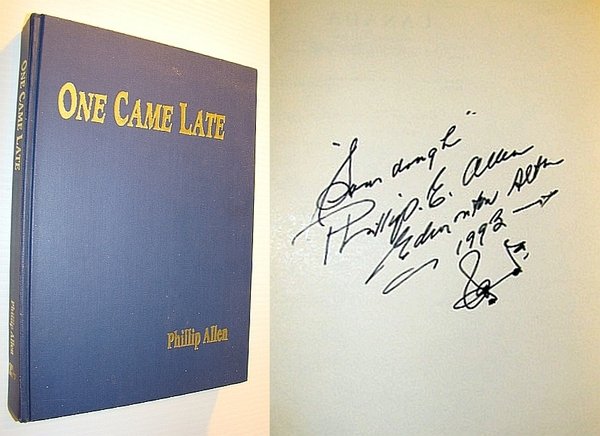 ONE CAME LATE
Phillip Allen
ONE CAME LATE
Phillip Allen
"Sourdough"
Phillip. E. Allen
Edmonton Alta
1993